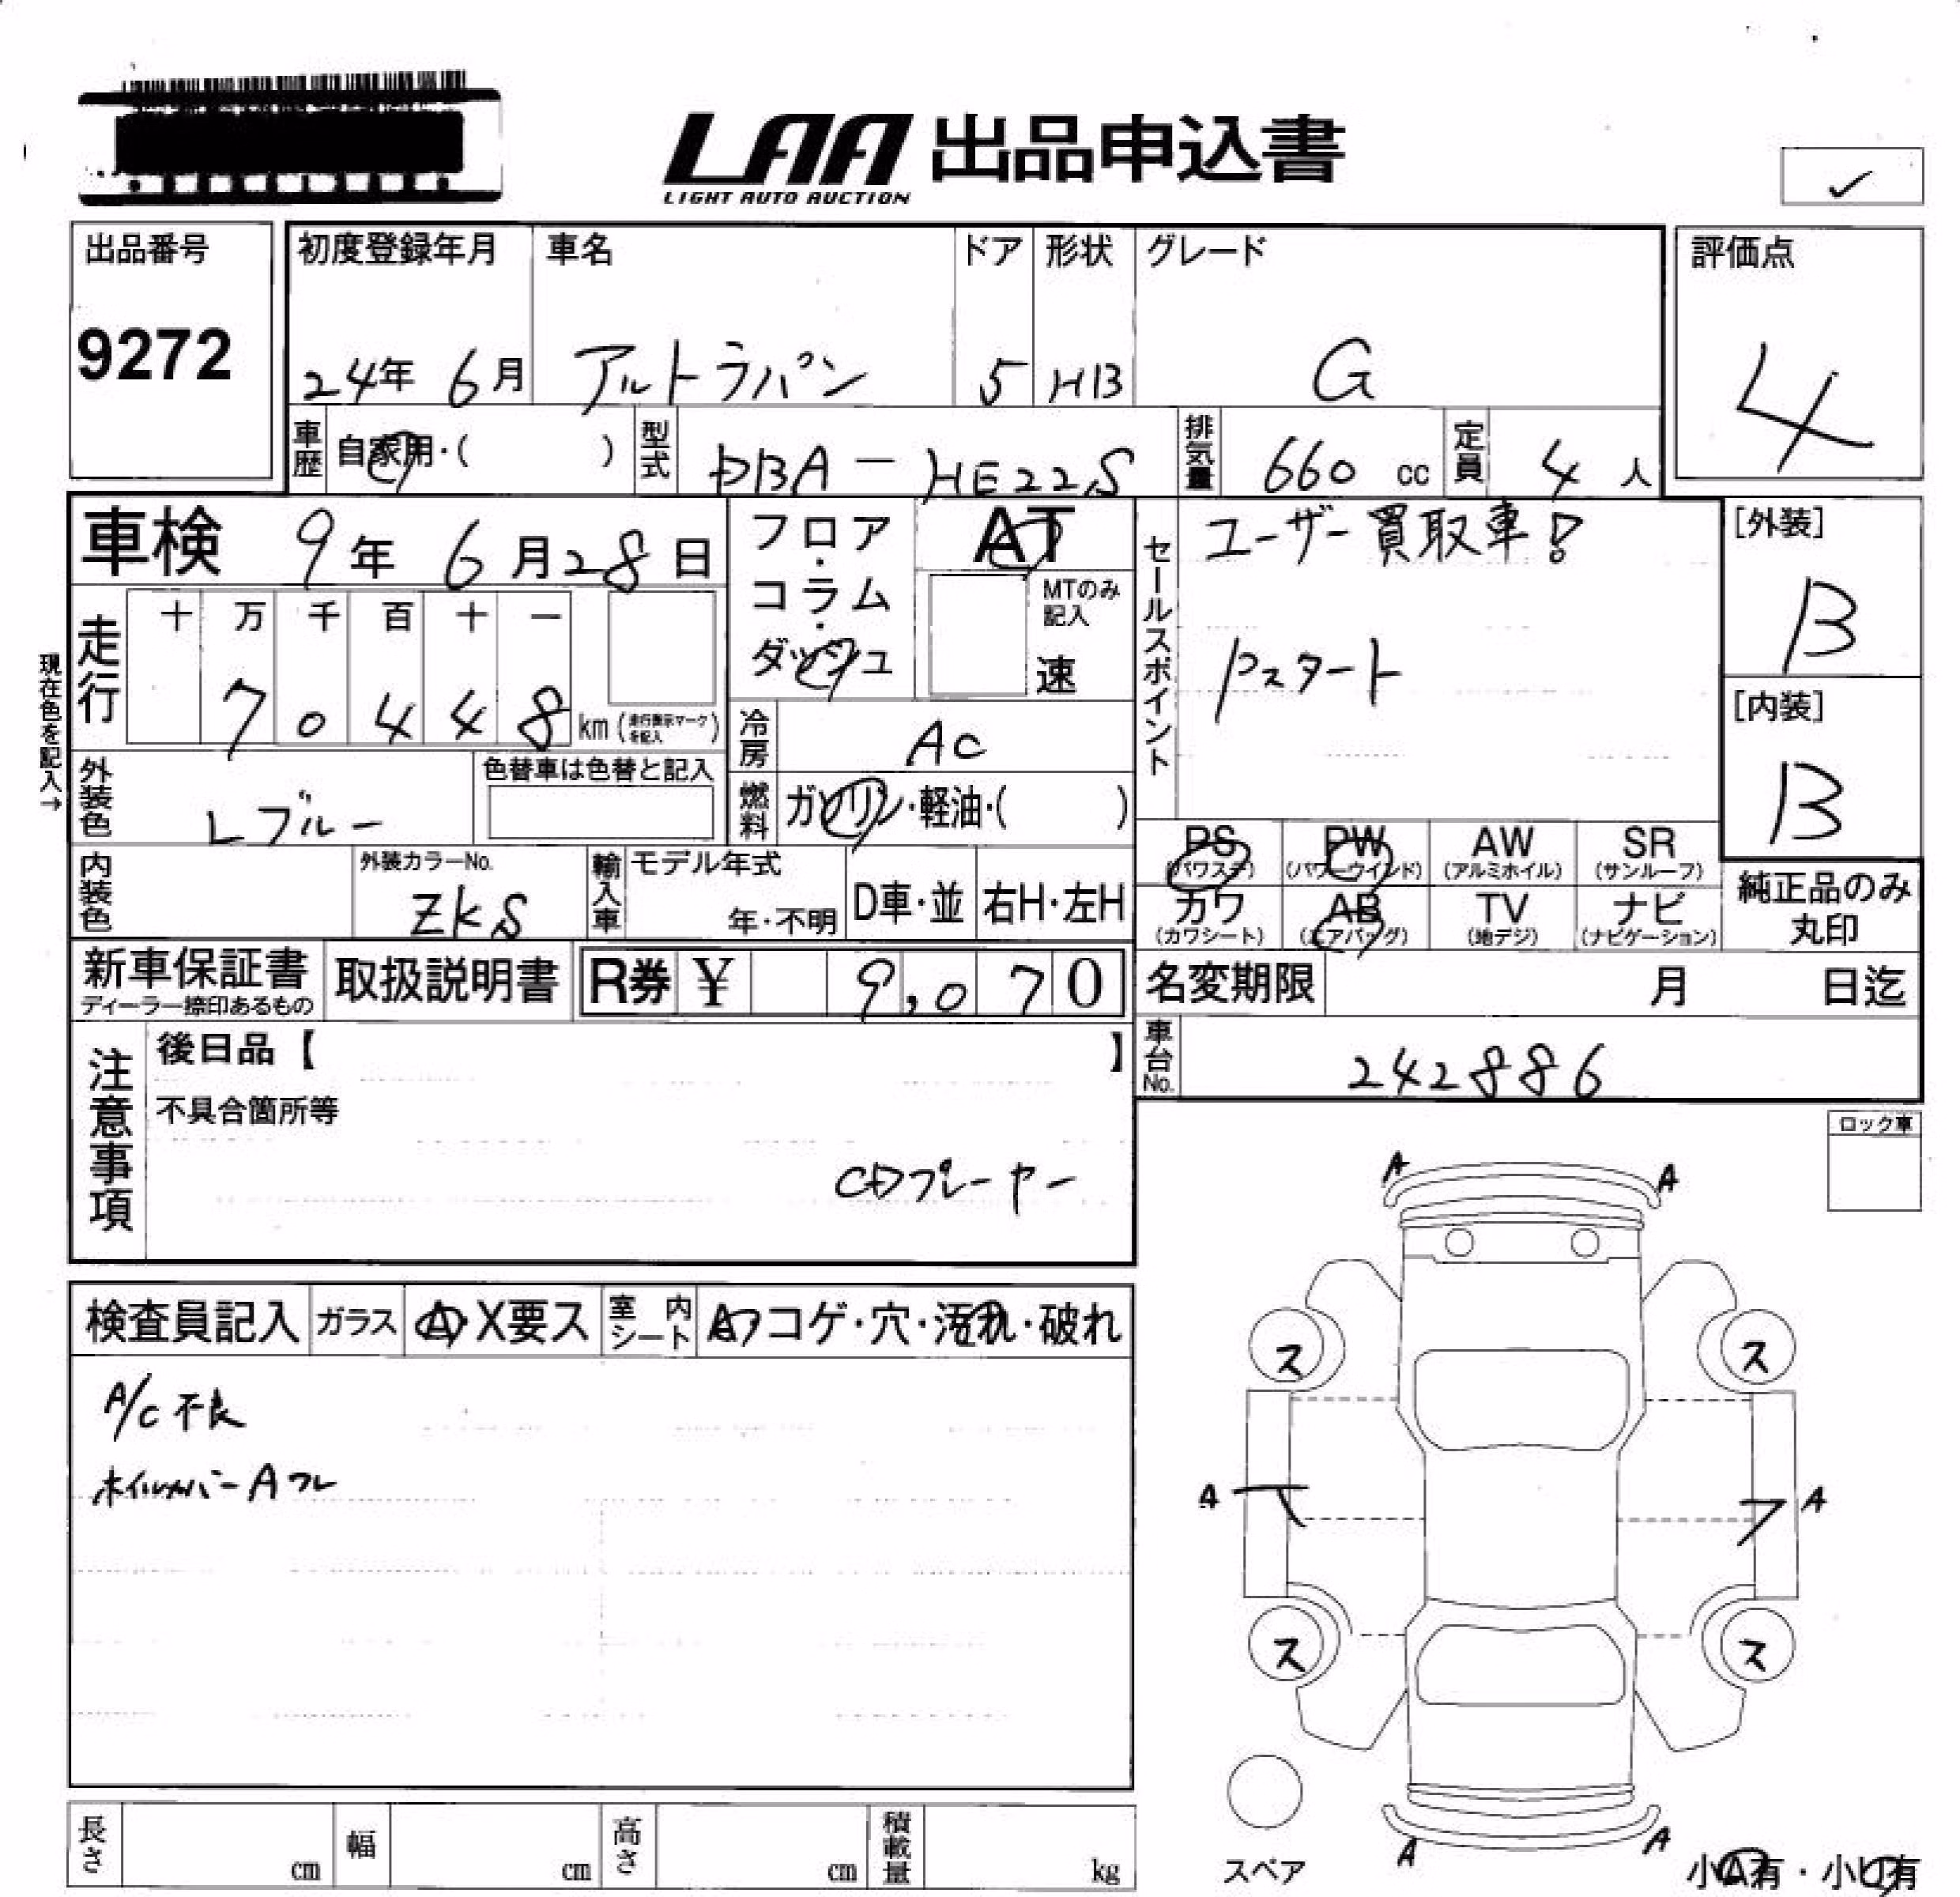 LAA 出品申込書
LIGHT AUTO AUCTION
✓
出品番号
9272
初度登録年月
24年 6月
車名
アルトラパン
ドア
5
形状
HB
グレード
G
評価点
4
車歴 自家用・( )
型式 DBA-HE22S
排気量 660 cc
定員 4 人
車検 9年 6月28日
フロア・コラム・ダッシュ
AT
MTのみ記入
速
走行
十 万 千 百 十 一
7 0 4 4 8 km (走行表示マークを記入)
現在色を記入→
外装色 Lブルー
色替車は色替と記入
冷房 AC
燃料 ガソリン・軽油・( )
内装色
外装カラーNo.
ZKS
輸入車 モデル年式
年・不明
D車・並
右H・左H
新車保証書
ディーラー捺印あるもの
取扱説明書
R券 ¥ 9,070
セールスポイント
ユーザー買取車!
Pスタート
[外装]
B
[内装]
B
PS (パワステ)
PW (パワーウインド)
AW (アルミホイル)
SR (サンルーフ)
カワ (カワシート)
AB (エアバッグ)
TV (地デジ)
ナビ (ナビゲーション)
純正品のみ
丸印
名変期限 月 日迄
車台No. 242886
注意事項
後日品【 】
不具合箇所等
CDプレーヤー
ロック車
検査員記入
ガラス A・X要ス
室内シート A・コゲ・穴・汚れ・破れ
A/C不良
ホイルカバーAワレ
A A
ス ス
A A
ス ス
A A
スペア
小A有・小U有
長さ cm
幅 cm
高さ cm
積載量 kg